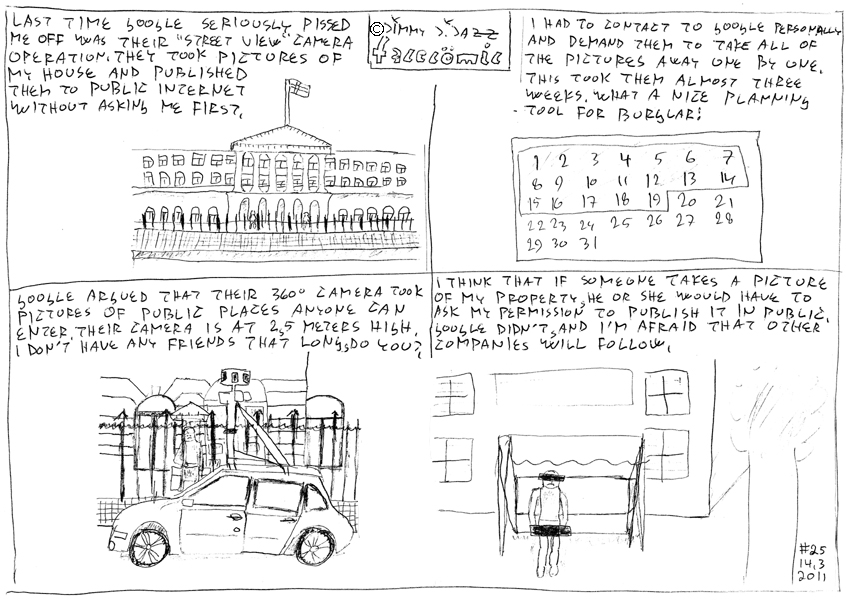 LAST TIME GOOGLE SERIOUSLY PISSED
ME OFF WAS THEIR "STREET VIEW"-CAMERA
OPERATION. THEY TOOK PICTURES OF
MY HOUSE AND PUBLISHED
THEM TO PUBLIC INTERNET
WITHOUT ASKING ME FIRST.
©JIMMY J. JAZZ
I HAD TO CONTACT TO GOOGLE PERSONALLY
AND DEMAND THEM TO TAKE ALL OF
THE PICTURES AWAY ONE BY ONE.
THIS TOOK THEM ALMOST THREE
WEEKS. WHAT A NICE PLANNING
TOOL FOR BURGLAR!
1 2 3 4 5 6 7
8 9 10 11 12 13 14
15 16 17 18 19 20 21
22 23 24 25 26 27 28
29 30 31
GOOGLE ARGUED THAT THEIR 360° CAMERA TOOK
PICTURES OF PUBLIC PLACES ANYONE CAN
ENTER. THEIR CAMERA IS AT 2,5 METERS HIGH.
I DON'T HAVE ANY FRIENDS THAT LONG, DO YOU?
I THINK THAT IF SOMEONE TAKES A PICTURE
OF MY PROPERTY, HE OR SHE WOULD HAVE TO
ASK MY PERMISSION TO PUBLISH IT IN PUBLIC.
GOOGLE DIDN'T, AND I'M AFRAID THAT OTHER
COMPANIES WILL FOLLOW.
#25
14.3
2011